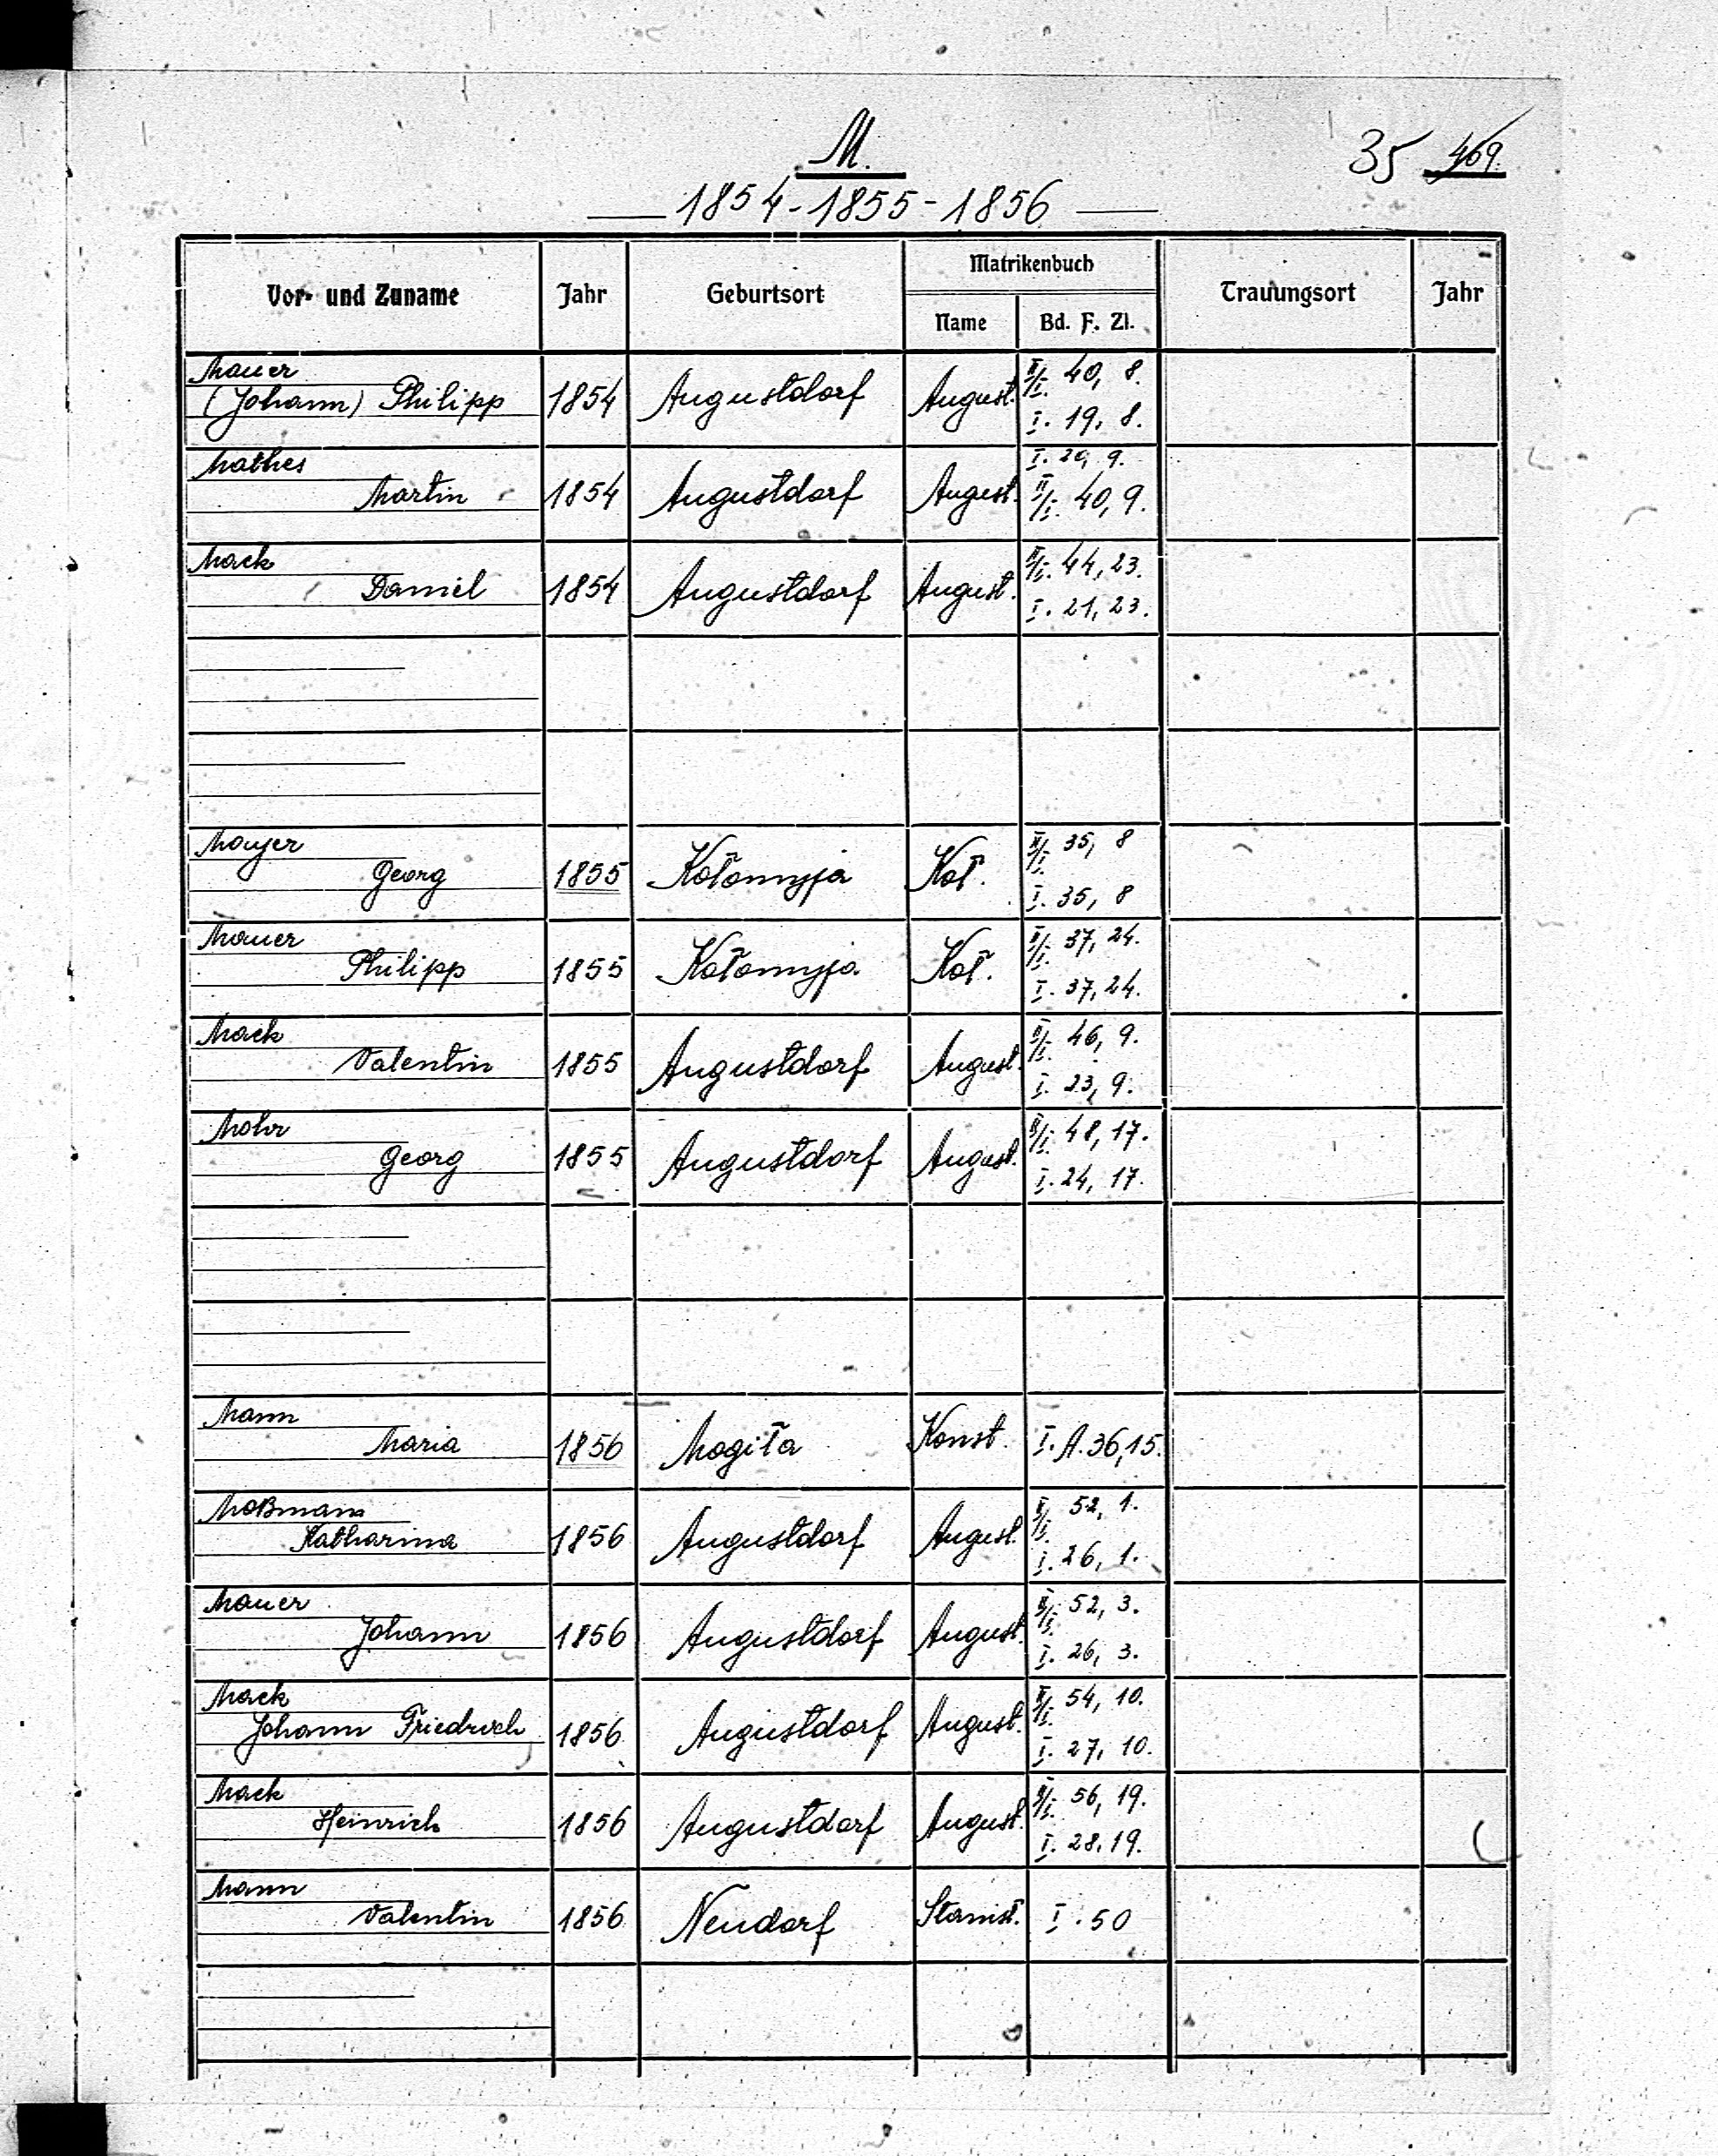 M.
35 469.
1854-1855-1856
Vor- und Zuname Jahr Geburtsort Matrikenbuch Trauungsort Jahr
Name Bd. F. Zl.
Mauer II/I. 40, 8.
(Johann) Philipp 1854 Augustdorf August. I. 19, 8.
Mathes I. 20, 9.
Martin 1854 Augustdorf August. II/I. 40, 9.
Mack II/I. 44, 23.
Daniel 1854 Augustdorf August. I. 21, 23.
Mayer II/I. 35, 8
Georg 1855 Kołomyja Koł. I. 35, 8
Mauer II/I. 37, 24.
Philipp 1855 Kołomyja Koł. I. 37, 24.
Mack II/I. 46, 9.
Valentin 1855 Augustdorf August. I. 23, 9.
Mohr II/I. 48, 17.
Georg 1855 Augustdorf August. I. 24, 17.
Mann
Maria 1856 Mogiła Konst. I. A. 36, 15.
Moßmann II/I. 52, 1.
Katharina 1856 Augustdorf August. I. 26, 1.
Mauer II/I. 52, 3.
Johann 1856 Augustdorf August. I. 26, 3.
Mack II/I. 54, 10.
Johann Friedrich 1856 Augustdorf August. I. 27, 10.
Mack II/I. 56, 19.
Heinrich 1856 Augustdorf August. I. 28, 19.
Mann
Valentin 1856 Neudorf Stanisł. I. 50